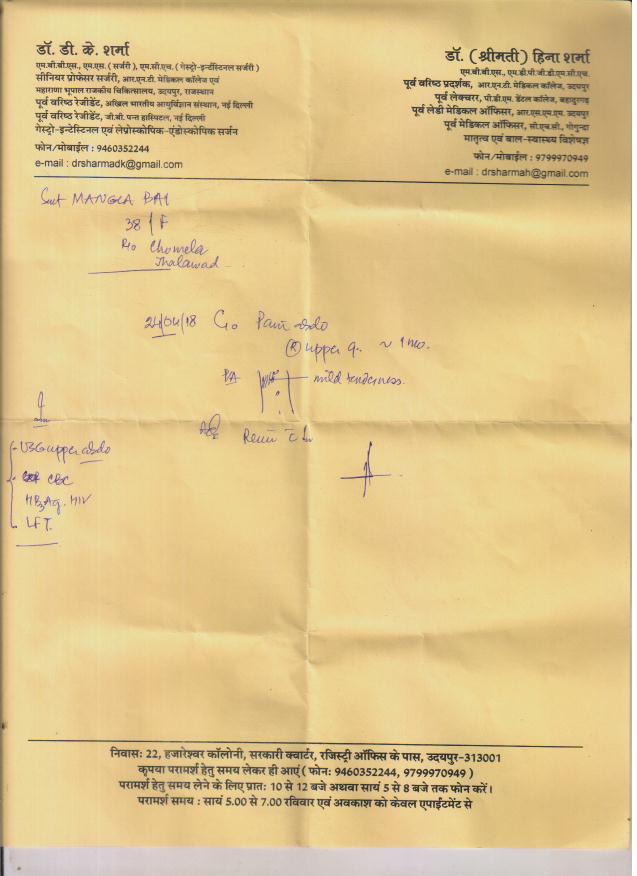 डॉ. डी. के. शर्मा
एम.बी.बी.एस., एम.एस. ( सर्जरी ), एम.सी.एच. ( गेस्ट्रो-इन्टेंस्टिनल सर्जरी )
सीनियर प्रोफेसर सर्जरी, आर.एन.टी. मेडिकल कॉलेज एवं
महाराणा भूपाल राजकीय चिकित्सालय, उदयपुर, राजस्थान
पूर्व वरिष्ठ रेजीडेंट, अखिल भारतीय आयुर्विज्ञान संस्थान, नई दिल्ली
पूर्व वरिष्ठ रेजीडेंट, जी.बी. पन्त हास्पिटल, नई दिल्ली
गेस्ट्रो-इन्टेस्टिनल एवं लेप्रोस्कोपिक-एंडोस्कोपिक सर्जन
फोन/मोबाईल : 9460352244
e-mail : drsharmadk@gmail.com
डॉ. (श्रीमती) हिना शर्मा
एम.बी.बी.एस., एम.डी.पी.जी.डी.एम.सी.एच.
पूर्व वरिष्ठ प्रदर्शक, आर.एन.टी. मेडिकल कॉलेज, उदयपुर
पूर्व लेक्चरर, पी.डी.एम. डेंटल कॉलेज, बहादुरगढ़
पूर्व लेडी मेडिकल ऑफिसर, आर.एस.एम.एम. उदयपुर
पूर्व मेडिकल ऑफिसर, सी.एच.सी., गोगुन्दा
मातृत्व एवं बाल-स्वास्थ्य विशेषज्ञ
फोन/मोबाईल : 9799970949
e-mail : drsharmah@gmail.com
Smt MANGLA BAI
38 | F
R/o Chomela
Jhalawad
24/04/18 C/o Pain abdo
(R) upper q. ~ 1 mo.
PA mild tenderness.
Adv
Review c Inv
- USG upper abdo
- CBC
HBsAg. HIV
- LFT
निवास: 22, हजारेश्वर कॉलोनी, सरकारी क्वार्टर, रजिस्ट्री ऑफिस के पास, उदयपुर-313001
कृपया परामर्श हेतु समय लेकर ही आएं ( फोन: 9460352244, 9799970949 )
परामर्श हेतु समय लेने के लिए प्रात: 10 से 12 बजे अथवा सायं 5 से 8 बजे तक फोन करें।
परामर्श समय : सायं 5.00 से 7.00 रविवार एवं अवकाश को केवल एपाईंटमेंट से